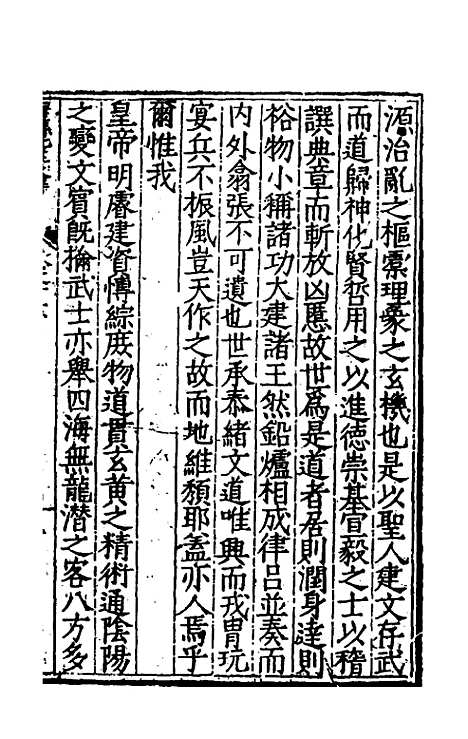 源治亂之樞橐理象之玄機也是以聖人建文存武
而道歸神化賢哲用之以進德崇基宦毅之士以稽
譔典章而斬放凶慝故世爲是道者居則潤身達則
裕物小稱諸功大建諸王然鉛爐相成律呂並奏而
内外翕張不可遺也世承泰緒文道唯興而戎胄玩
宴兵不振風豈天作之故而地維頽耶盖亦人焉乎
爾惟我
皇帝明睿建資慱綜庶物道貫玄黄之精術通陰陽
之變文質旣掄武士亦舉四海無龍潛之客八方多